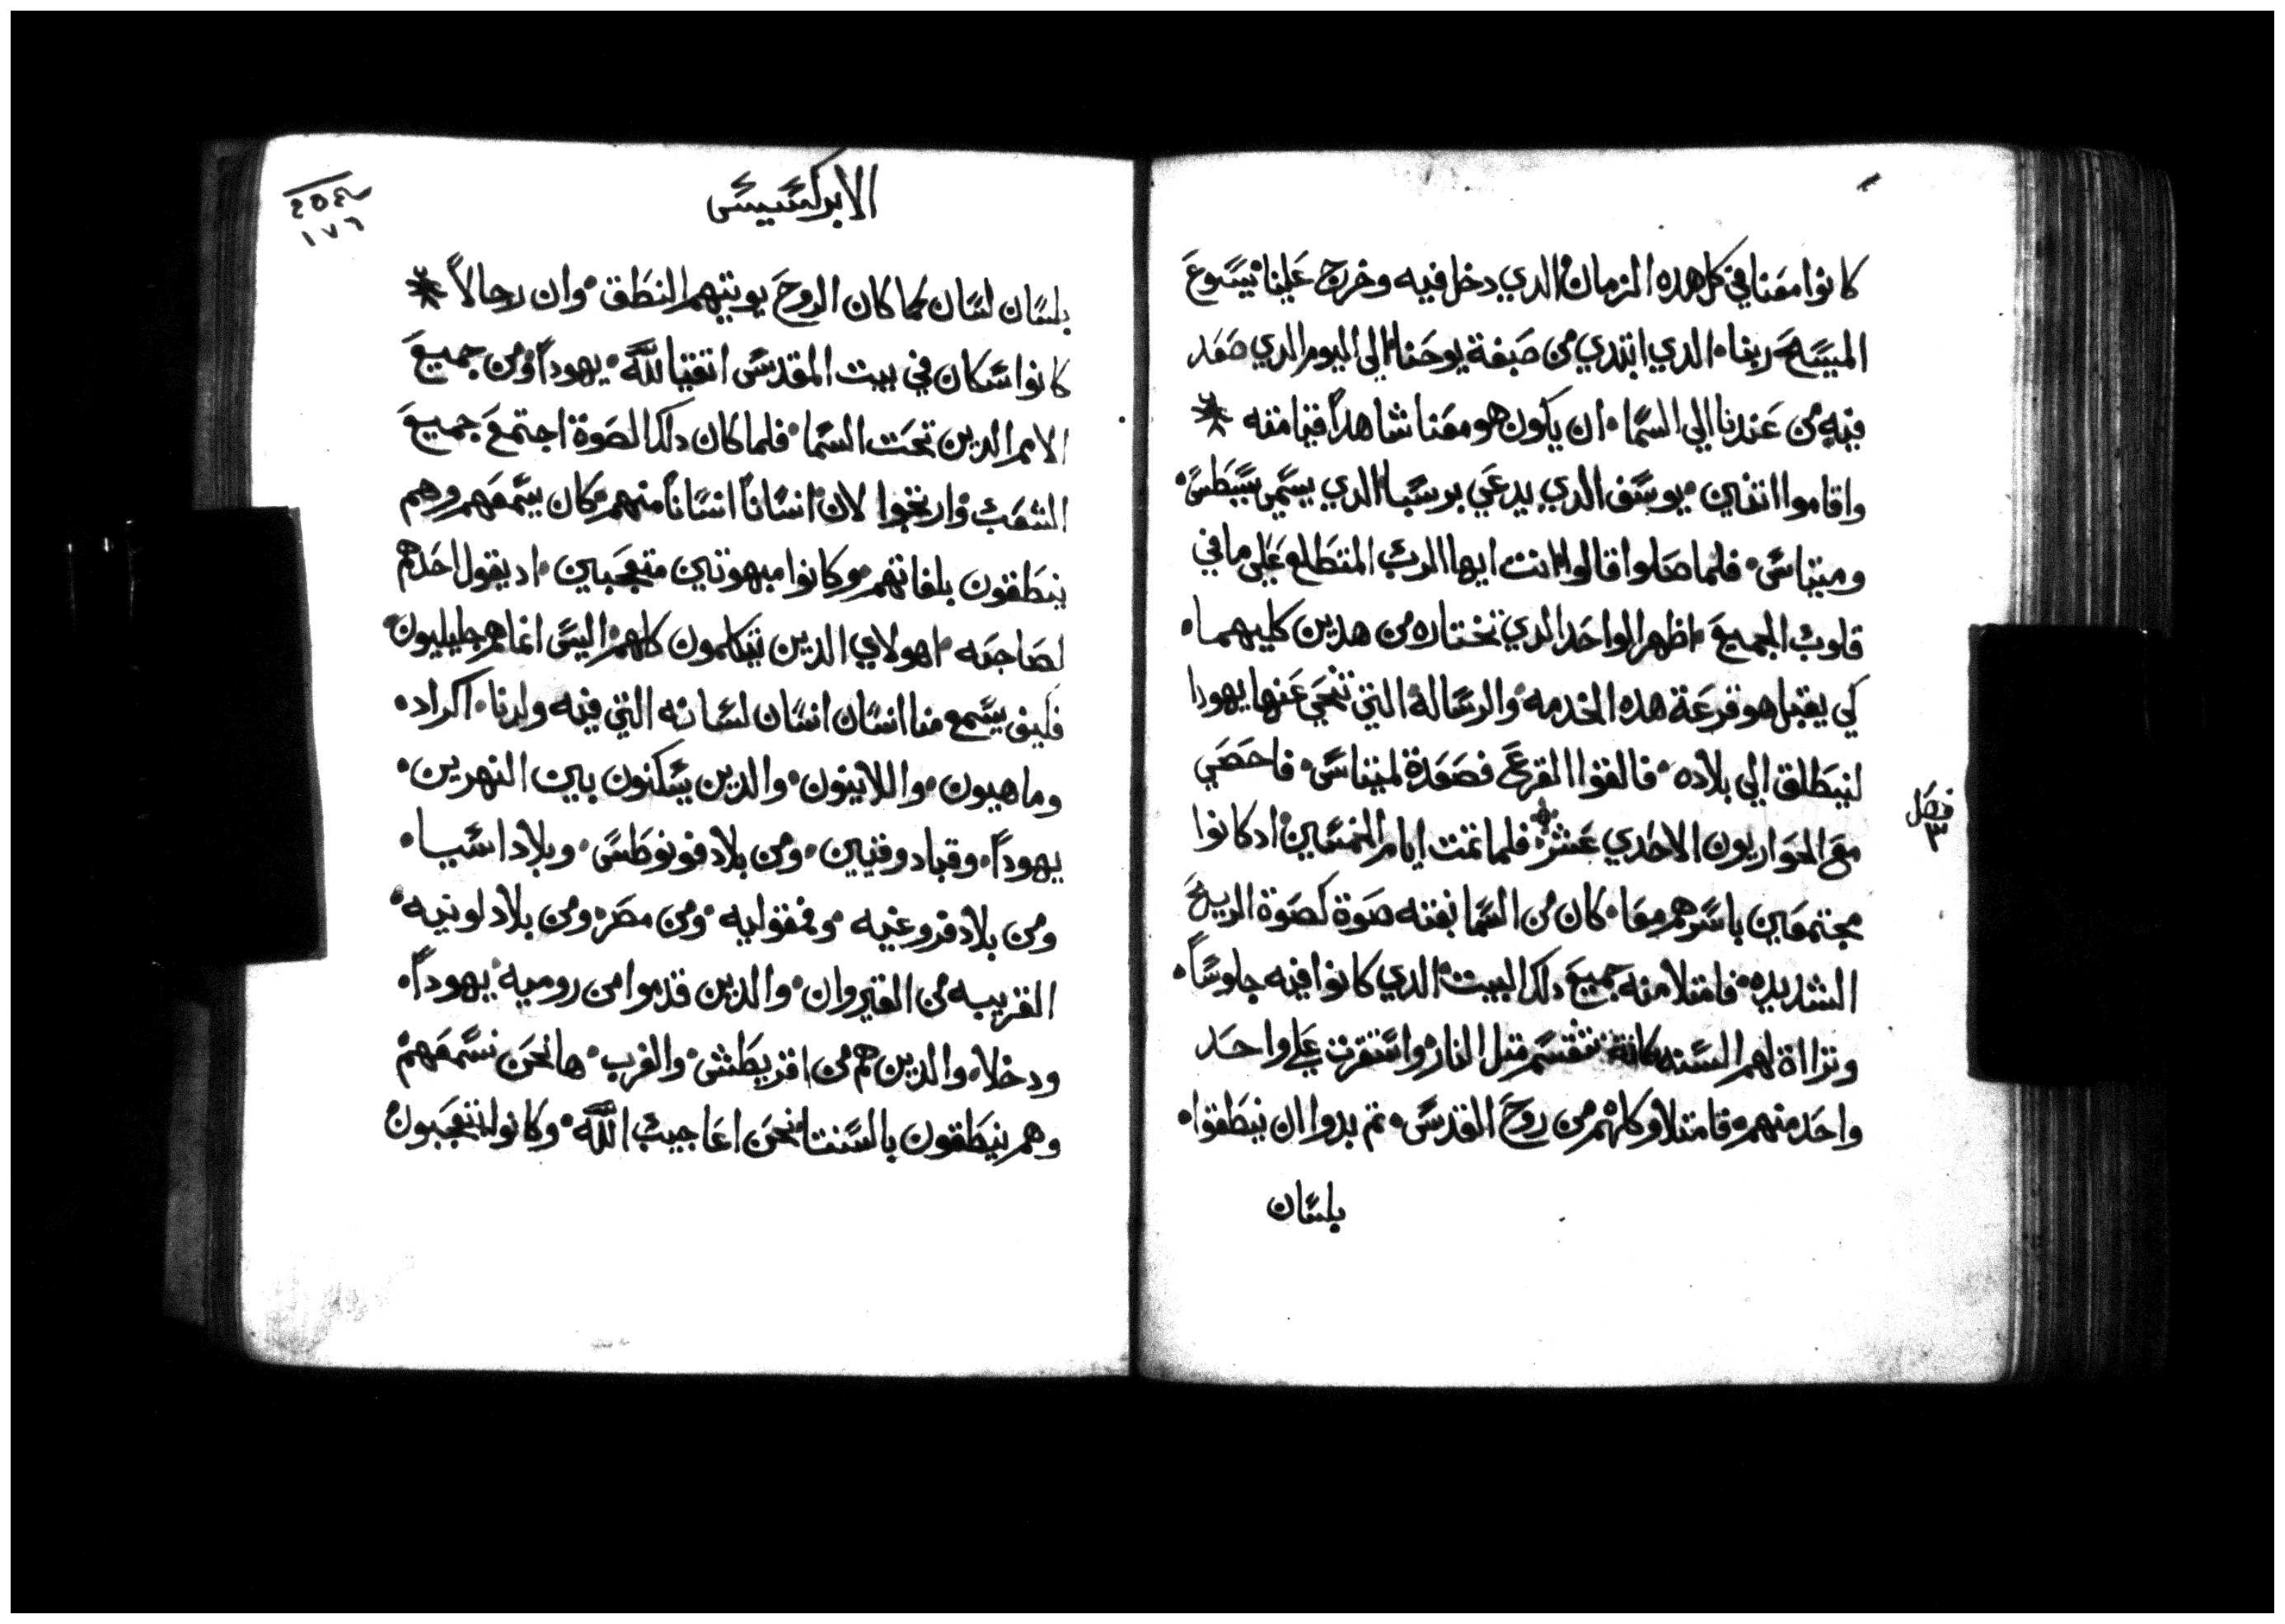 كانوا معنا في كل هده الزمان الدي دخل فيه وخرج علينا يسوع
المسيح ربنا الدي ابتدي من صبغة يوحنا الي اليوم الدي صعد
فيه من عندنا الي السما ان يكون هو معنا شاهداً قيامته
واقاموا اتنين يوسف الدي يدعي برسبا الدي يسمي يسطس
وميتاس فلما صلوا قالوا انت ايها الرب المتطلع علي ما في
قلوب الجميع اظهر الواحد الدي تختاره من هدين كليهما
كي يقبل هو قرعة هده الخدمه والرسالة التي تنحي عنها يهودا
لينطلق الي بلاده فالقوا القرع فصعدة لميتاس فاحصي
فصل
٣
مع الحواريون الاحدي عشر فلما تمت ايام الخمسين ادكانوا
مجتمعين باسرهم معا كان من السما بغته صوة كصوة الريح
الشديده فامتلا منه جميع دلك البيت الدي كانوا فيه جلوساً
وتزااة لهم السنه كانة تنقسم متل النار واستقرت علي واحد
واحد منهم فامتلاو كلهم من روح القدس تم بدوا ان ينطقوا
بلسان
٢٥٤
١٧٦
الابركسيس
بلسان لسان كما كان الروح يويتهم النطق وان رجالاً
كانوا سكان في بيت المقدس اتقيا لله يهوداً ومن جميع
الامم الدين تحت السما فلما كان دلك الصوة اجتمع جميع
الشعب وارتجوا لان انساناً انساناً منهم كان يسمعهم وهم
ينطقون بلغاتهم وكانوا مبهوتين متعجبين اد يقول احدهم
لصاحبه اهولاي الدين يتكلمون كلهم اليس انما هم جليليون
فكيف يسمع منا انسان انسان لسانه التي فيه ولدنا اكراد
وماهيون واللانيون والدين يسكنون بين النهرين
يهوداً وقبادوقيين ومن بلاد فونوطس وبلاد اسيا
ومن بلاد فروغيه وفمفوليه ومن مصر ومن بلاد لوبيه
القريبه من القيروان والدين قدموا من رومية يهوداً
ودخلاه والدين هم من اقريطش والغرب ها نحن نسمعهم
وهم ينطقون بالسنتنا نحن اعاجيب الله وكانوا يتعجبون